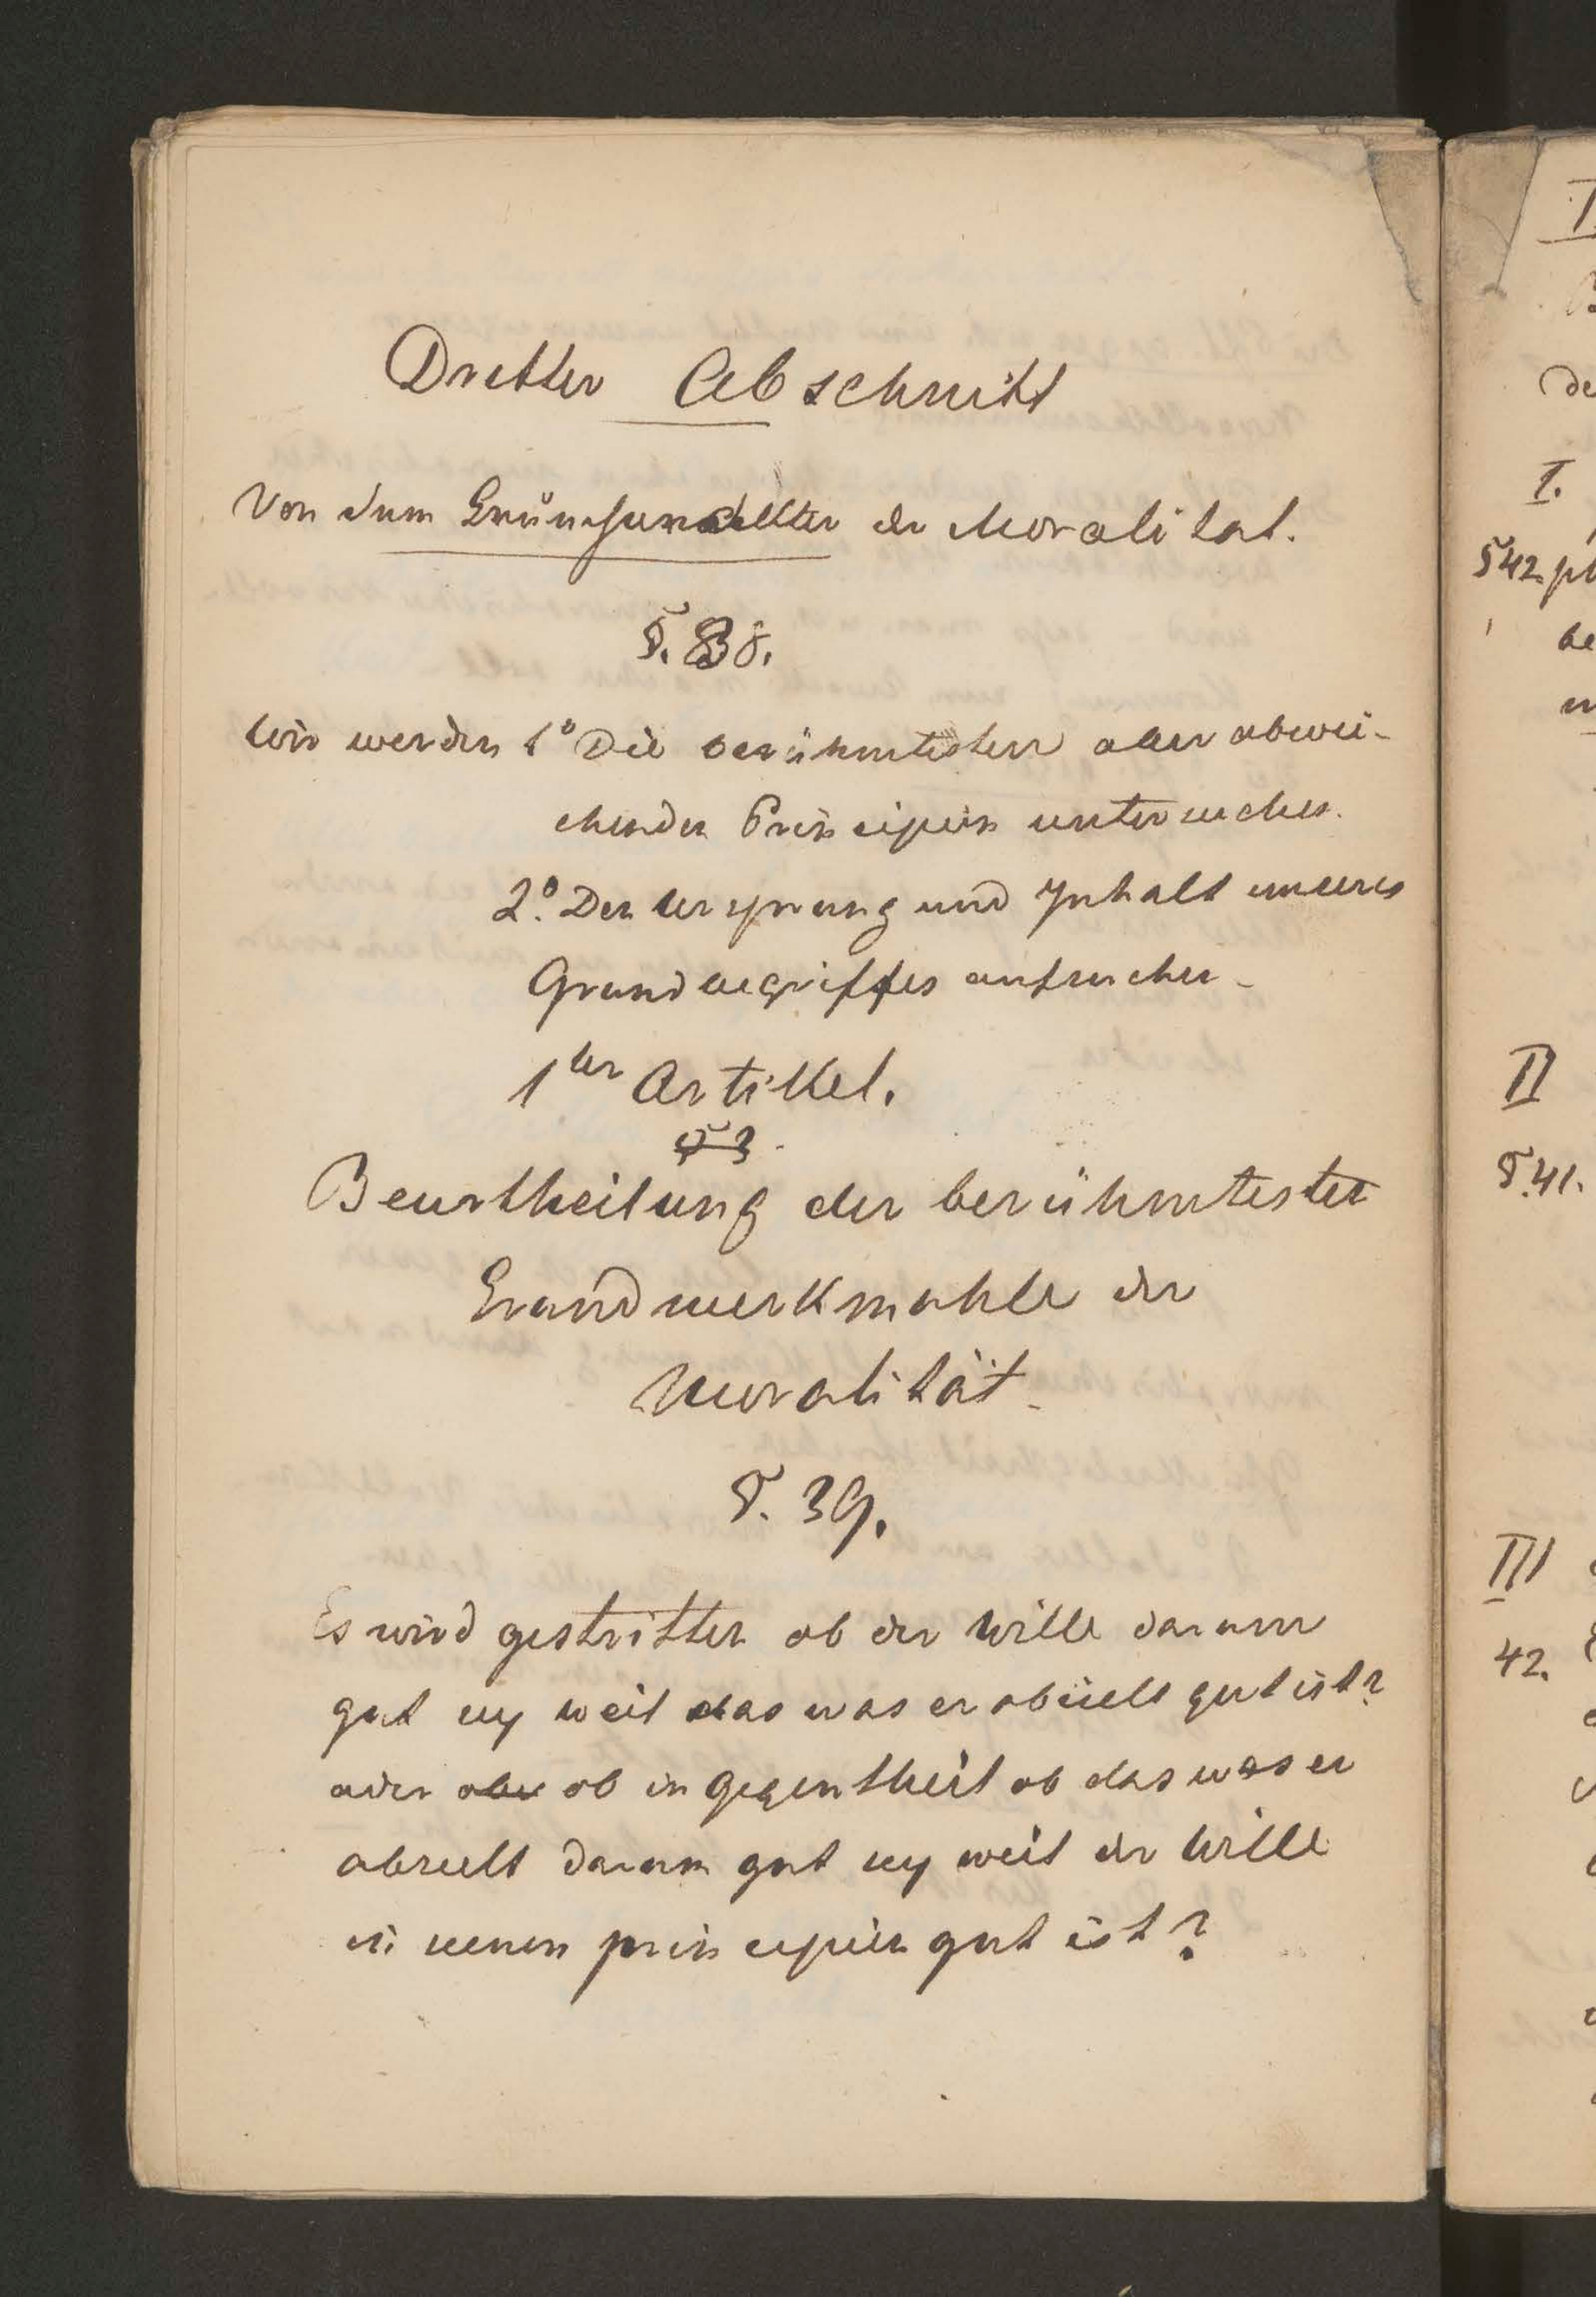 Dritter Abschnitt
Von dem der Moralitat.
§. 38.
Wir werden 1° Die berühmtesten aber abwei-
chenden Principien untersuchen.
2°. Den Ursprung und Inhalt unseres
Grundbegriffes aufsuchen.
1ter Artikel.
§ 3
Beurtheilung der berühmtesten
Grundmerkmahle der
Moralität.
§. 39.
Es wird gestritten ob der Wille darum
gut sey weil das was er abzielt gut ist?
oder aber ob in Gegentheil ob das was er
abzielt darum gut sey weil der Wille
in seinen principien gut ist?
I.
§ 42.
II
§. 41.
III
42.